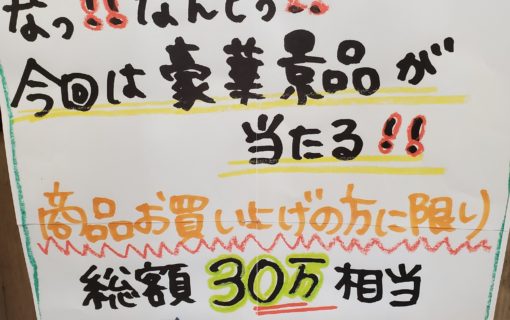 なっ!!なんとっ!!
今回は豪華景品が
当たる!!
商品お買い上げの方に限り
総額30万相当